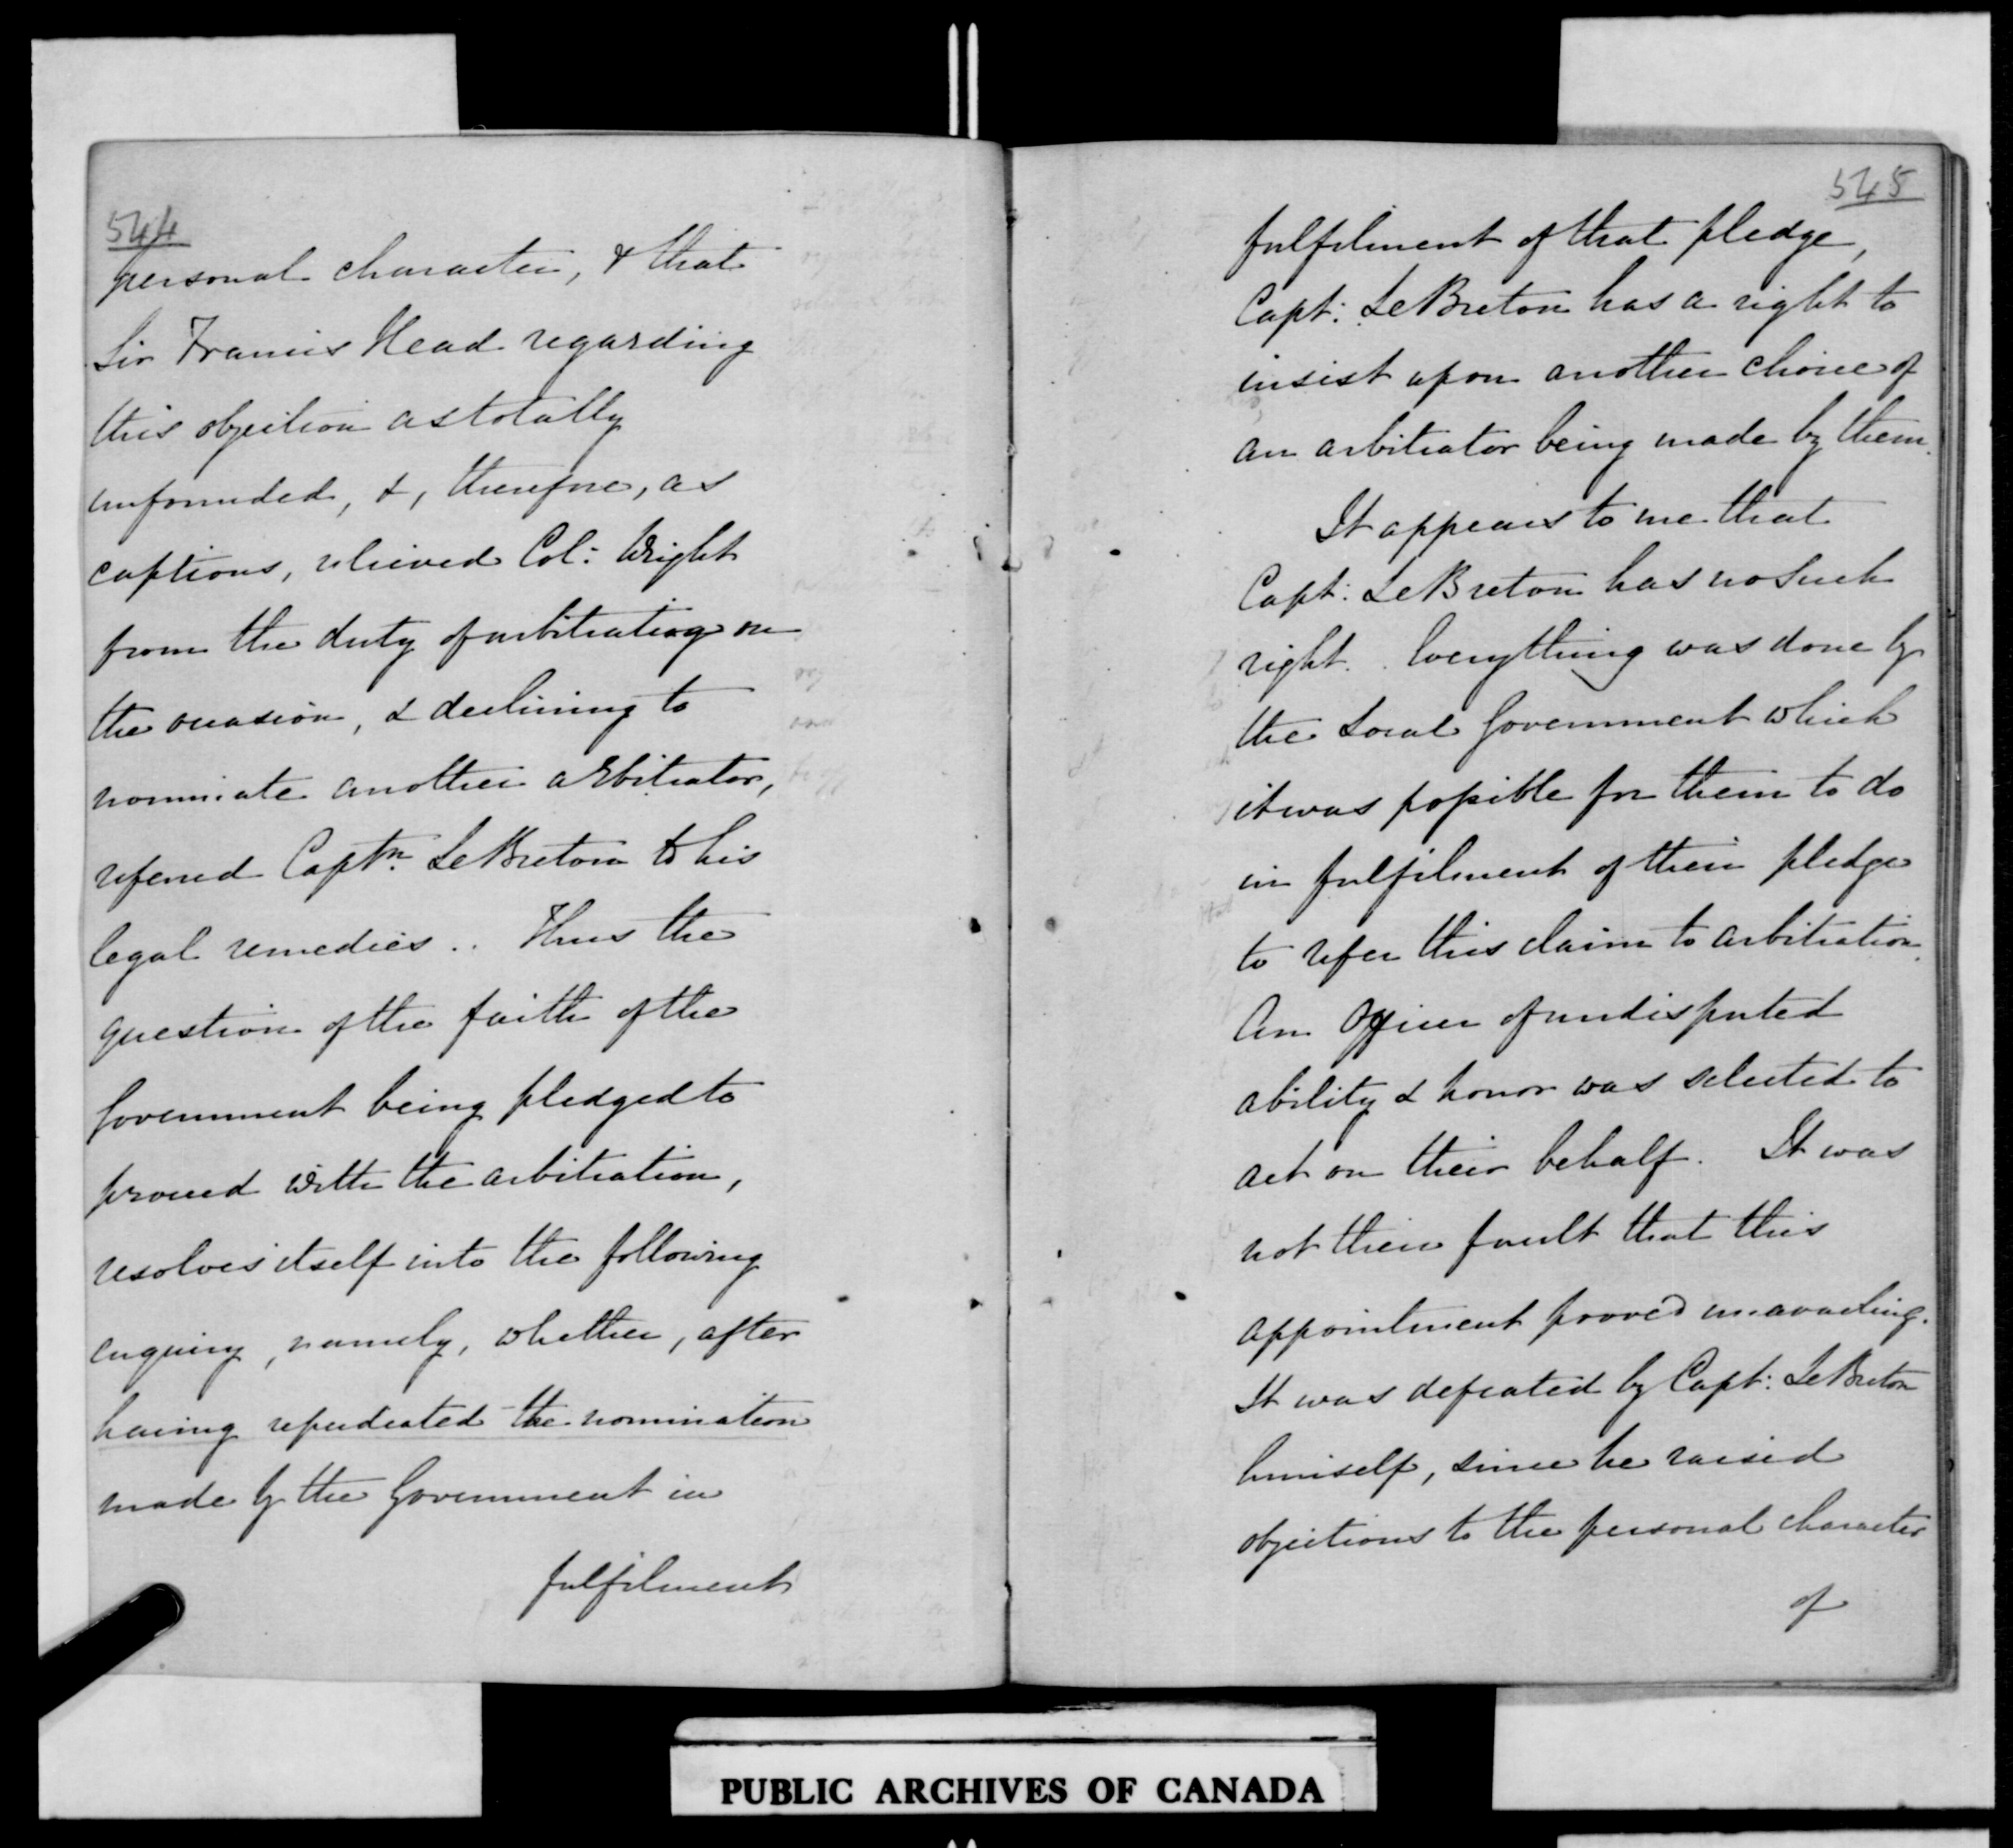 544
personal character, & that
Sir Francis Head regarding
this objection as totally
unfounded, &, therefore, as
captious, relieved Col: Wright
from the duty of arbitrating on
the occasion, & declining to
nominate another arbitrator,
referred Captn. LeBreton to his
legal remedies.. Thus the
question of the faith of the
Government being pledged to
proceed with the arbitration,
resolves itself into the following
enquiry, namely, whether, after
having repudiated the nomination
made by the Government in
fulfilment
545
fulfilment of that pledge,
Capt: LeBreton has a right to
insist upon another choice of
an arbitrator being made by them.
It appears to me that
Capt: LeBreton has no such
right. Everything was done by
the Local Government which
it was possible for them to do
in fulfilment of their pledge
to refer this claim to arbitration.
An Officer of undisputed
ability & honor was selected to
act on their behalf. It was
not their fault that this
appointment proved unavailing.
It was defeated by Capt: LeBreton
himself, since he raised
objections to the personal character
of
PUBLIC ARCHIVES OF CANADA